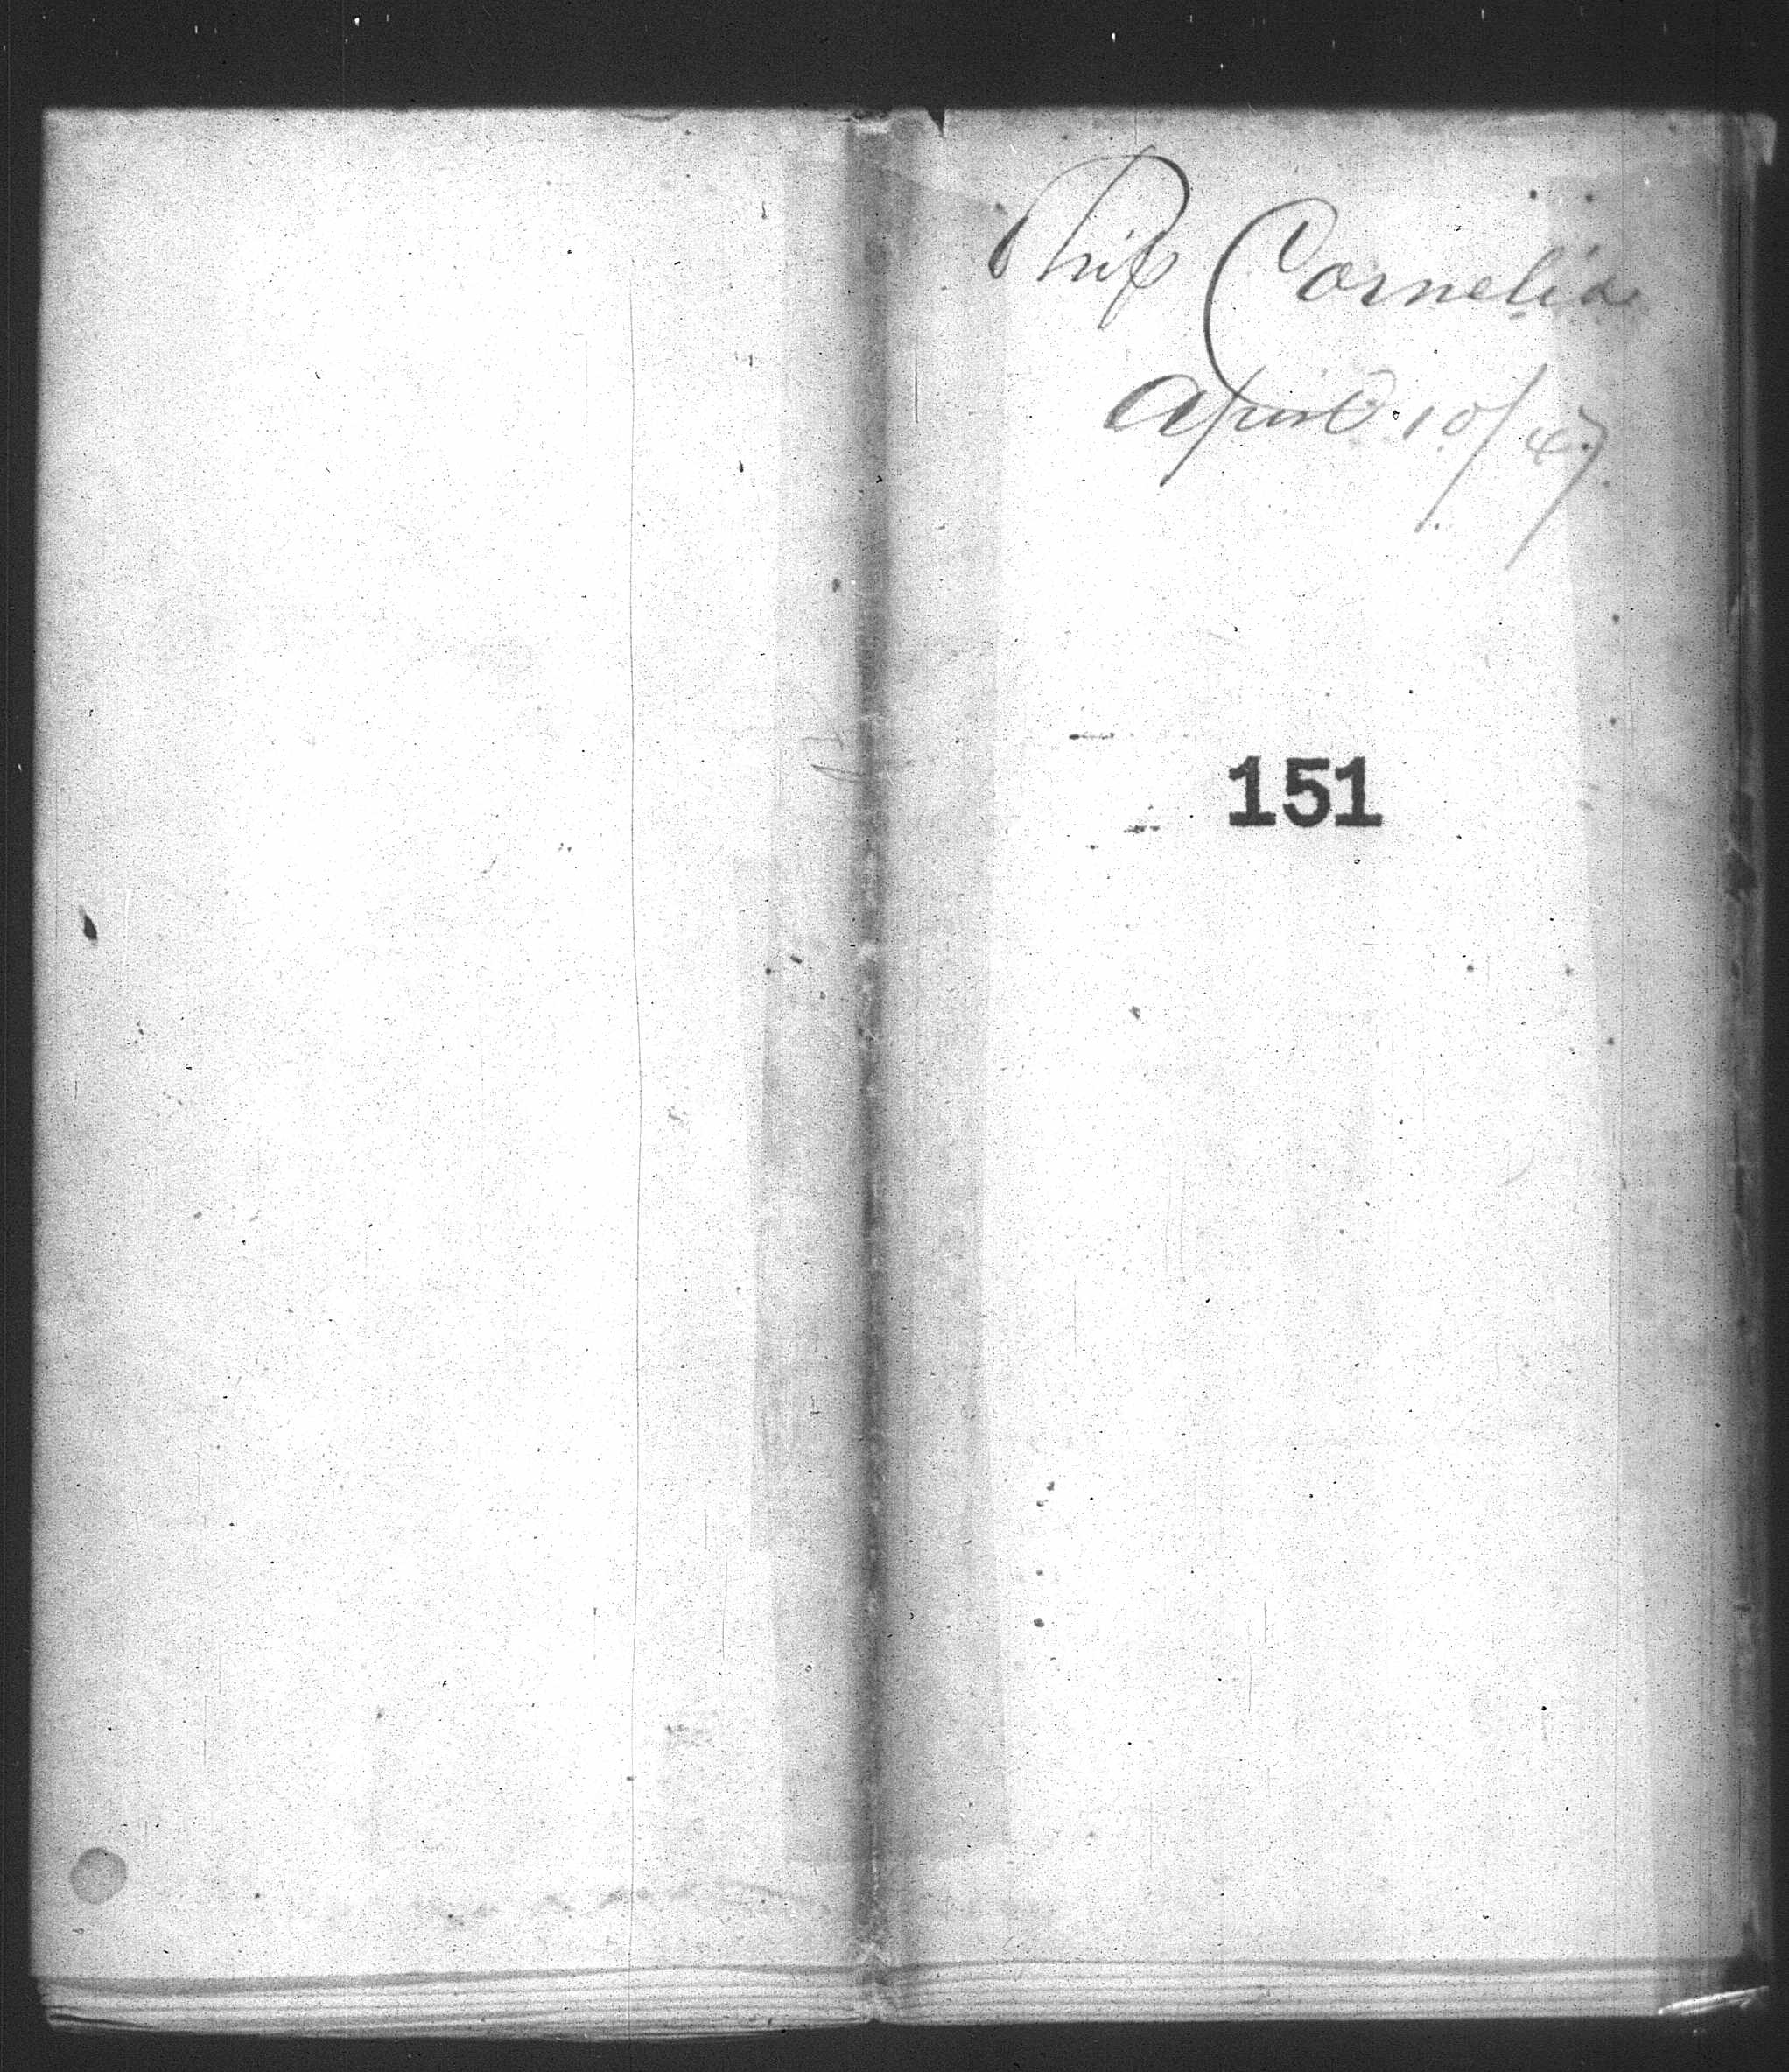 Ship Cornelia
April 10/47
151